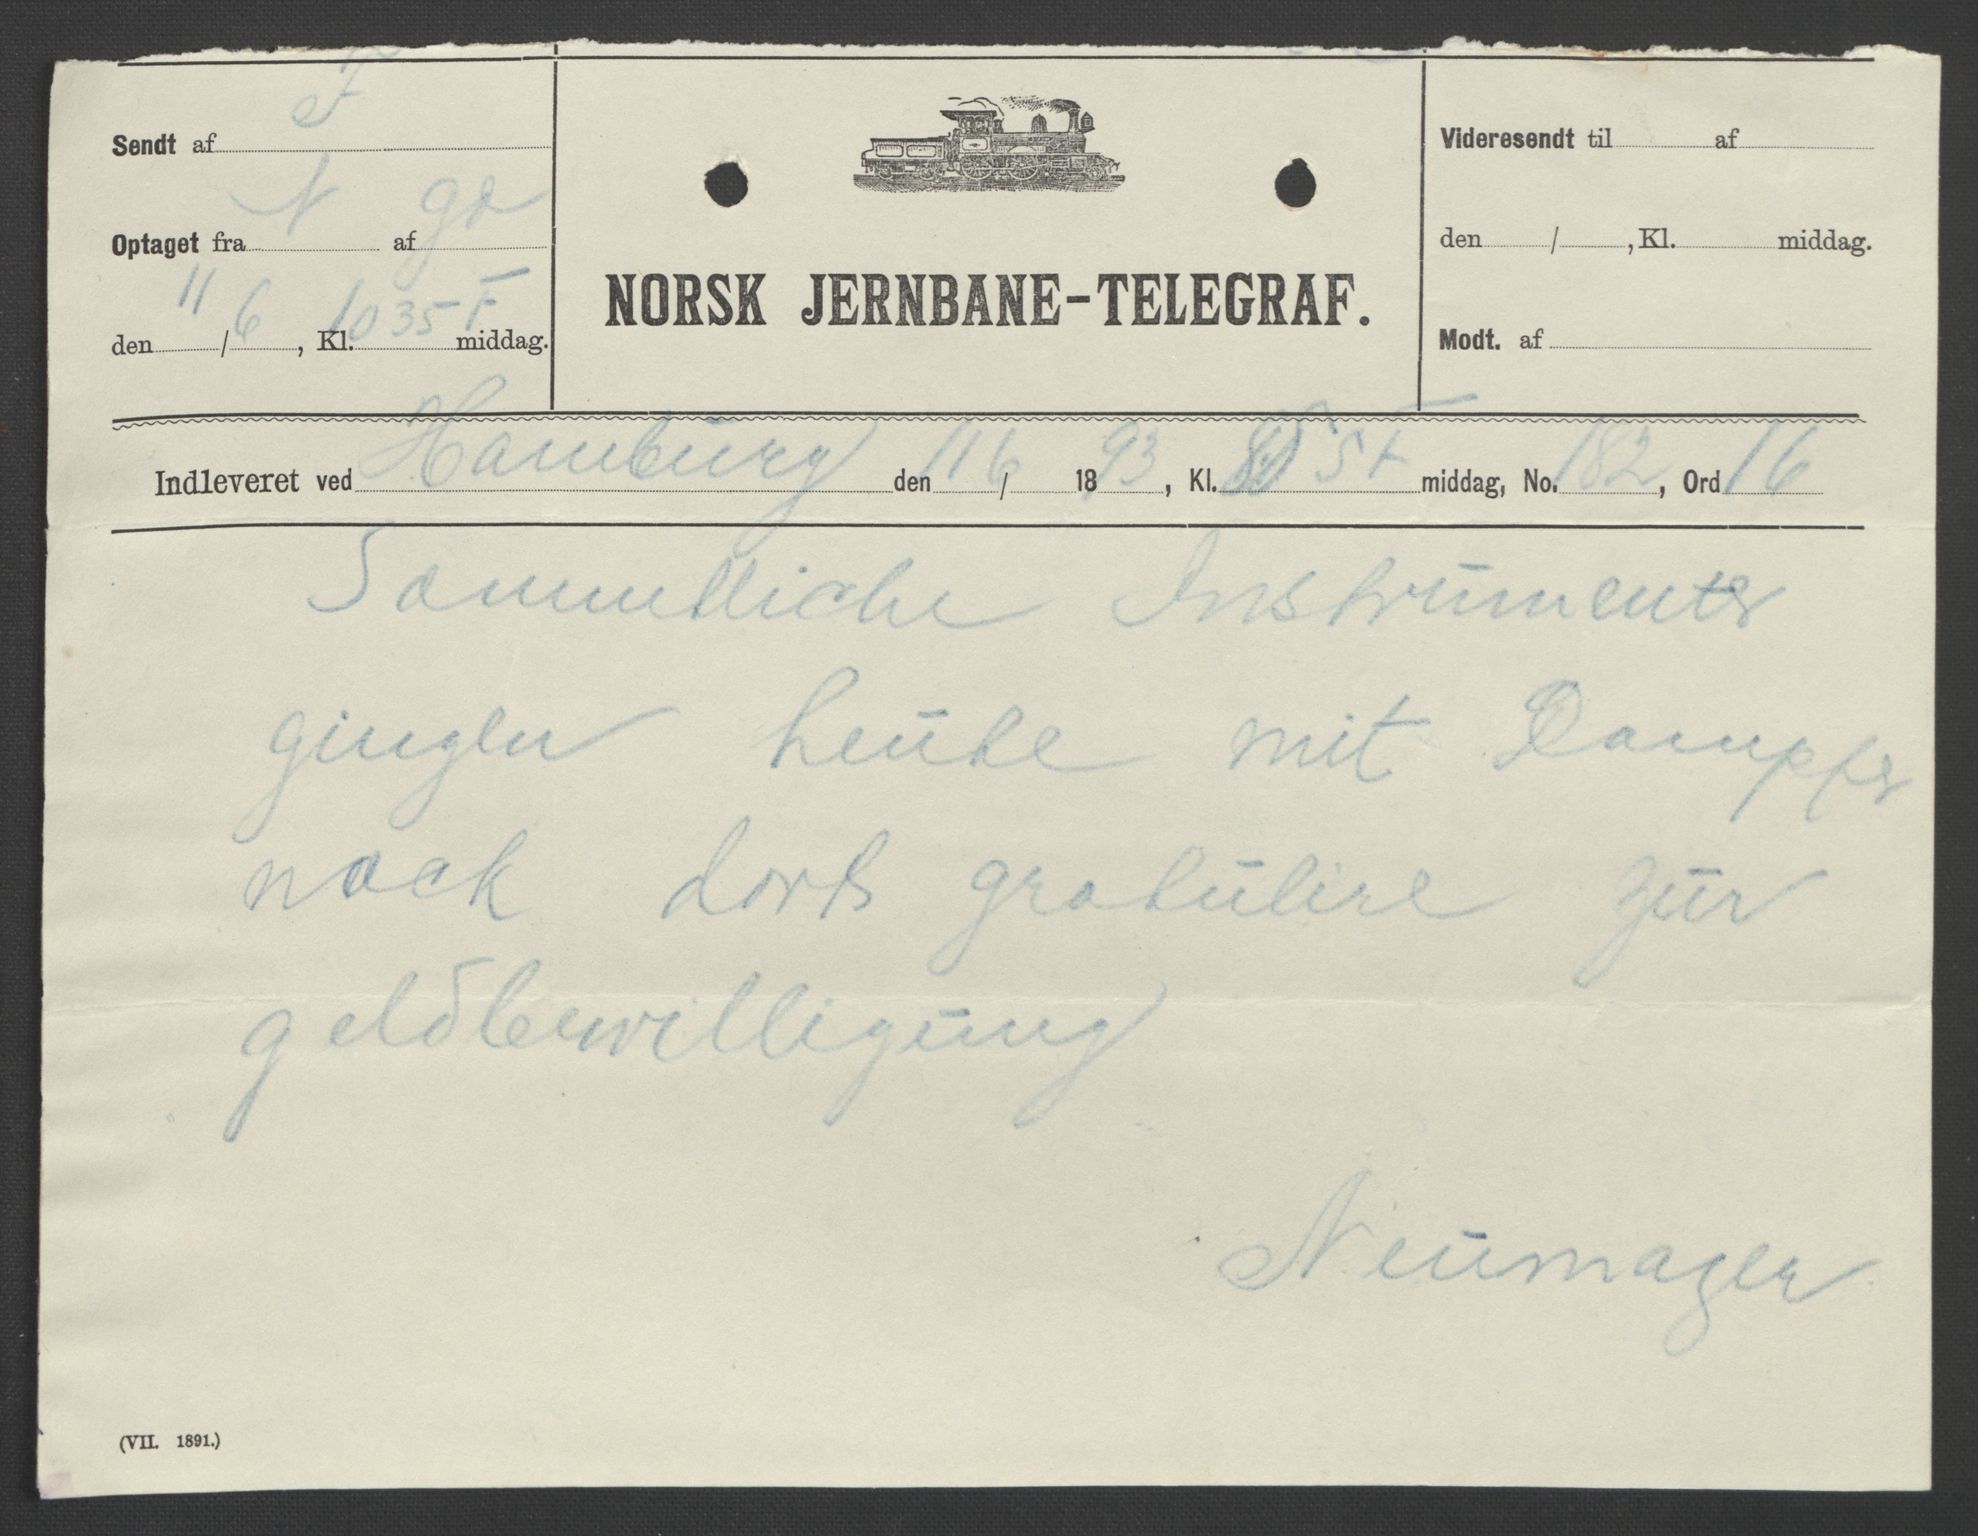 Sendt af F
Optaget fra N af gd
den 11/6, Kl. 10 35 F middag.
NORSK JERNBANE-TELEGRAF.
Videresendt til af
den / , Kl. middag.
Modt. af
Indleveret ved Hamburg den 11/6 18 93, Kl. F middag, No. 182, Ord 16
Sammtliche Instrumenter
gingen heute mit Dampfer
nack dort gratulire zur
geldbewilligung
Neumager
(VII. 1891.)